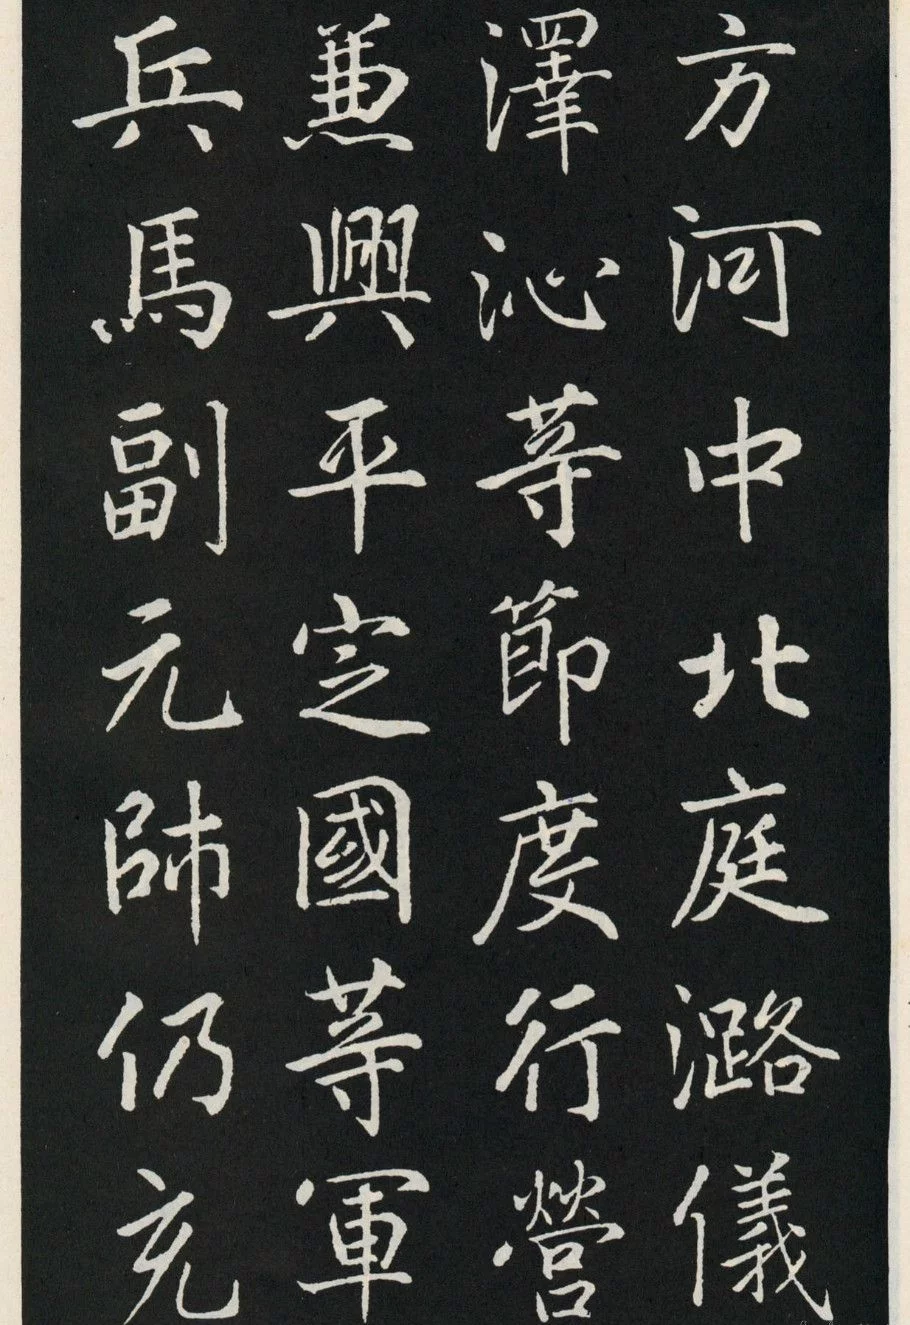 方河中北庭潞儀
澤沁等節度行營
兼興平定國等軍
兵馬副元帥仍充